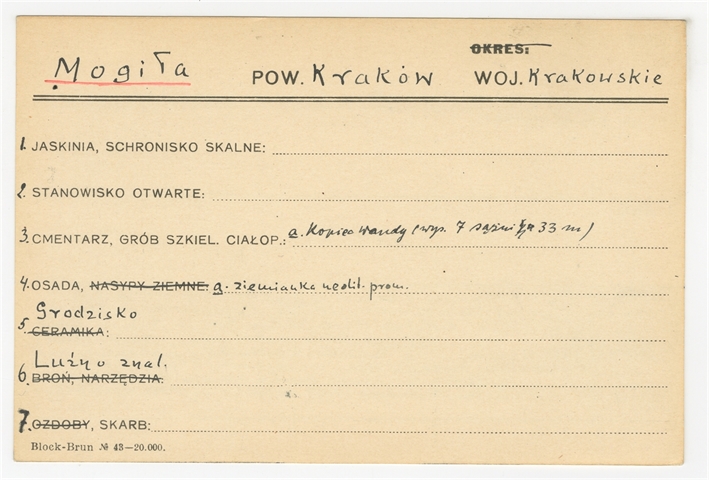 OKRES:
Mogiła POW. Kraków WOJ. Krakowskie
1. JASKINIA, SCHRONISKO SKALNE:
2. STANOWISKO OTWARTE:
3. CMENTARZ, GRÓB SZKIEL. CIAŁOP.: a. Kopiec Wandy (wys. 7 sążni 33 m)
4. OSADA, NASYPY ZIEMNE: a. ziemianka neolit. prom.
Grodzisko
5. CERAMIKA:
Luźno znal.
6. BROŃ, NARZĘDZIA:
7. OZDOBY, SKARB:
Block-Brun № 43—20.000.